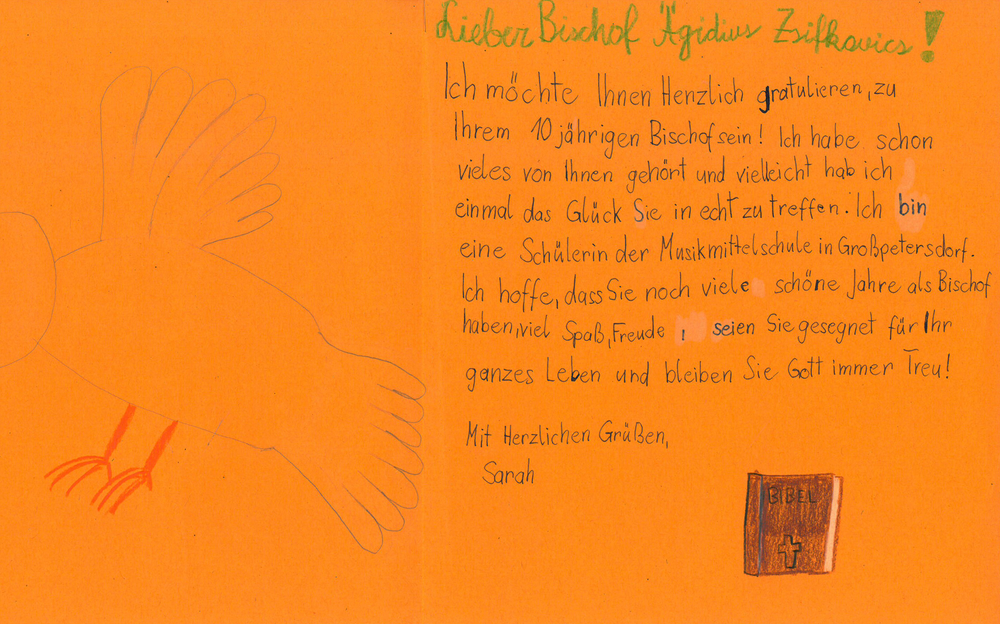 Lieber Bischof Ägidius Zsifkovics!
Ich möchte Ihnen Herzlich gratulieren, zu
Ihrem 10 jährigen Bischofsein! Ich habe schon
vieles von Ihnen gehört und vielleicht hab ich
einmal das Glück Sie in echt zu treffen. Ich bin
eine Schülerin der Musikmittelschule in Großpetersdorf.
Ich hoffe, dass Sie noch viele schöne Jahre als Bischof
haben, viel Spaß, Freude , seien Sie gesegnet für Ihr
ganzes Leben und bleiben Sie Gott immer Treu!
Mit Herzlichen Grüßen,
Sarah
BIBEL